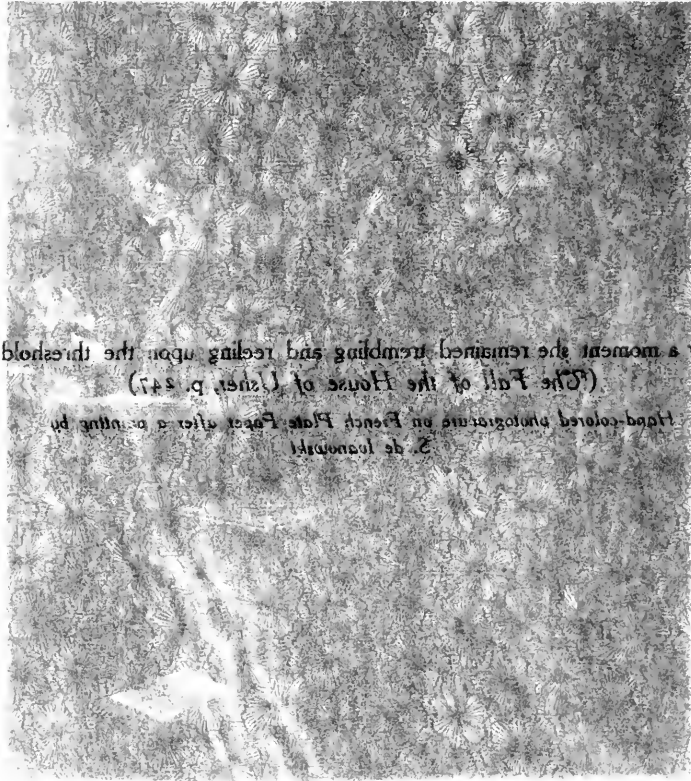 a moment she remained trembling and reeling upon the threshold
(The Fall of the House of Usher, p. 247)
Hand-colored photogravure on French Plate Paper after a painting by
S. de Ivanowski